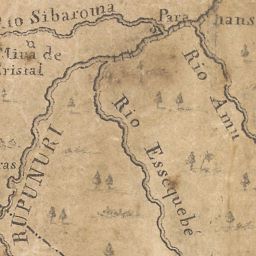 to Sibaroma
Para
hans
Mina de
Cristal
Rio Amu
Rio Essequebé
RUPUNURI
ras